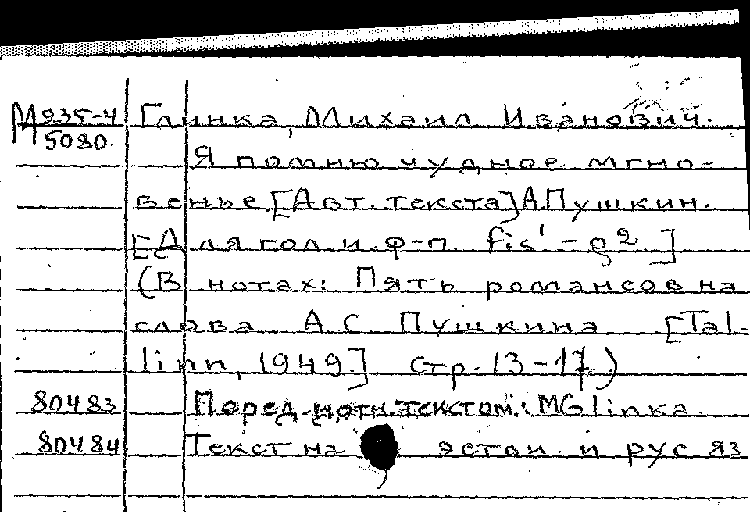 М 935-4 Глинка, Михаил Иванович.
5080
Я помню чудное мгно-
венье [Авт. текста] А.Пушкин.
[Для гол. и ф-п. fis'-g2.]
(В нотах: Пять романсов на
слова А.С. Пушкина [Tal-
linn, 1949.] стр. 13-17.)
80483 Перед нотн. текстом: M Glinka.
80484 Текст на эстон. и рус яз